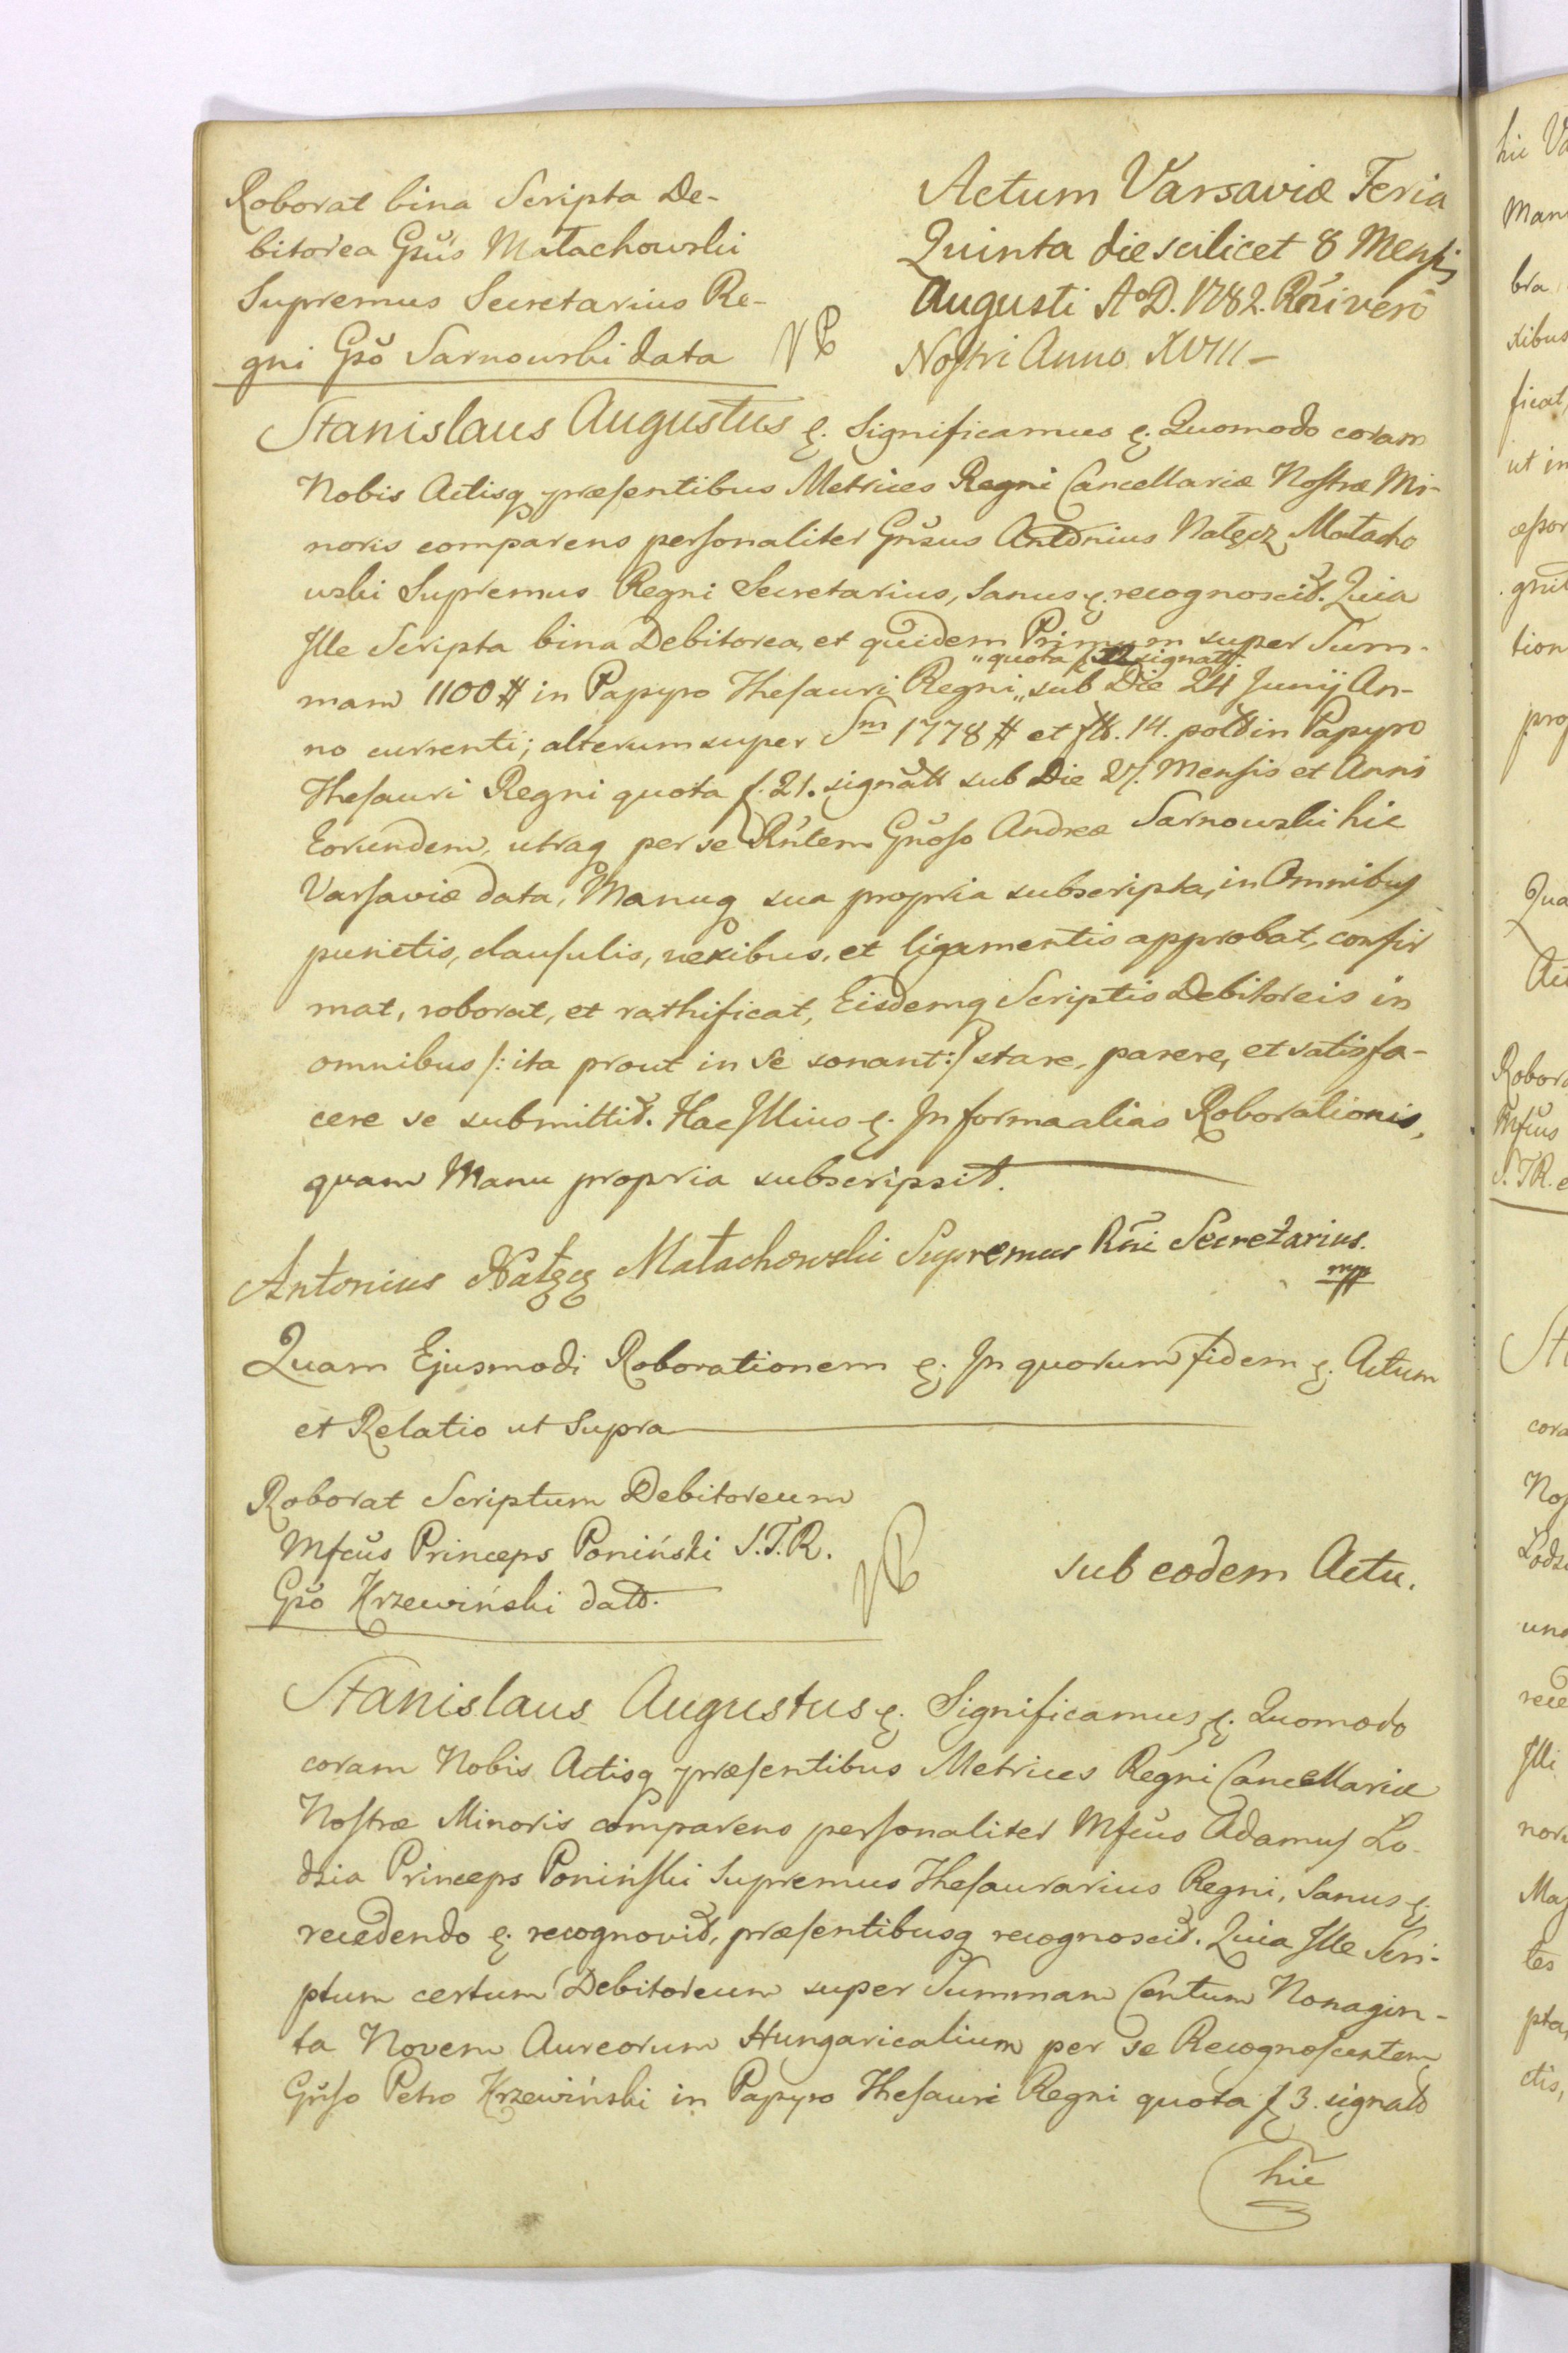 Roborat bina Scripta De-
bitorea Gsus Małachowski
Supremus Secretarius Re-
gni Gso Sarnowski data
NB
Actum Varsaviæ Feria
Quinta die scilicet 8 Mensis
Augusti Ao D. 1782. Rni vero
Nostri Anno XVIII-
Stanislaus Augustus &. Significamus &. Quomodo coram
Nobis Actisq præsentibus Metrices Regni Cancellariæ Nostræ Mi-
noris comparens personaliter Gnsus Antonius Nałęcz Małacho
wski Supremus Regni Secretarius, Sanus &. recognoscit. Quia
Ille Scripta bina Debitorea, et quidem Primum super Sum-
„quota signatt.
mam 1100 # in Papyro Thesauri Regni „ sub Die 24 Junij An-
no currenti; alterum super Sm 1778 # et fl. 14. pol in Papyro
Thesauri Regni quota f. 21. signatt sub Die 27. Mensis et Anni
Eorundem, utraq per se Rntem Gnoso Andreæ Sarnowski hic
Varsaviæ data, Manuq sua propria subscripta, in Omnibus
punctis, clausulis, nexibus, et ligamentis approbat, confir
mat, roborat, et rathificat, Eisdemq Scriptis Debitoreis in
omnibus /: ita prout in se sonant :/ stare, parere, et satisfa-
cere se submittit. Hac Illius &. In forma alias Roborationis,
quam Manu propria subscripsit.
Antonius Nałęcz Małachowski Supremus Rni Secretarius.
mpp
Quam Ejusmodi Roborationem &. In quorum fidem &. Actum
et Relatio ut Supra
Roborat Scriptum Debitoreum
Mfcus Princeps Poniński S.T.R.
Gso Krzewiński datt.
NB
sub eodem Actu.
Stanislaus Augustus &. Significamus &. Quomodo
coram Nobis Actisq præsentibus Metrices Regni Cancellariæ
Nostræ Minoris comparens personaliter Mfcus Adamus Lo-
dzia Princeps Poniński Supremus Thesaurarius Regni, Sanus &.
recedendo &. recognovit, præsentibusq recognoscit. Quia Ille Scri-
ptum certum Debitoreum super Summam Centum Nonagin-
ta Novem Aureorum Hungaricalium per se Recognoscentem
Gnso Petro Krzewiński in Papyro Thesauri Regni quota f 3. signatt
hic